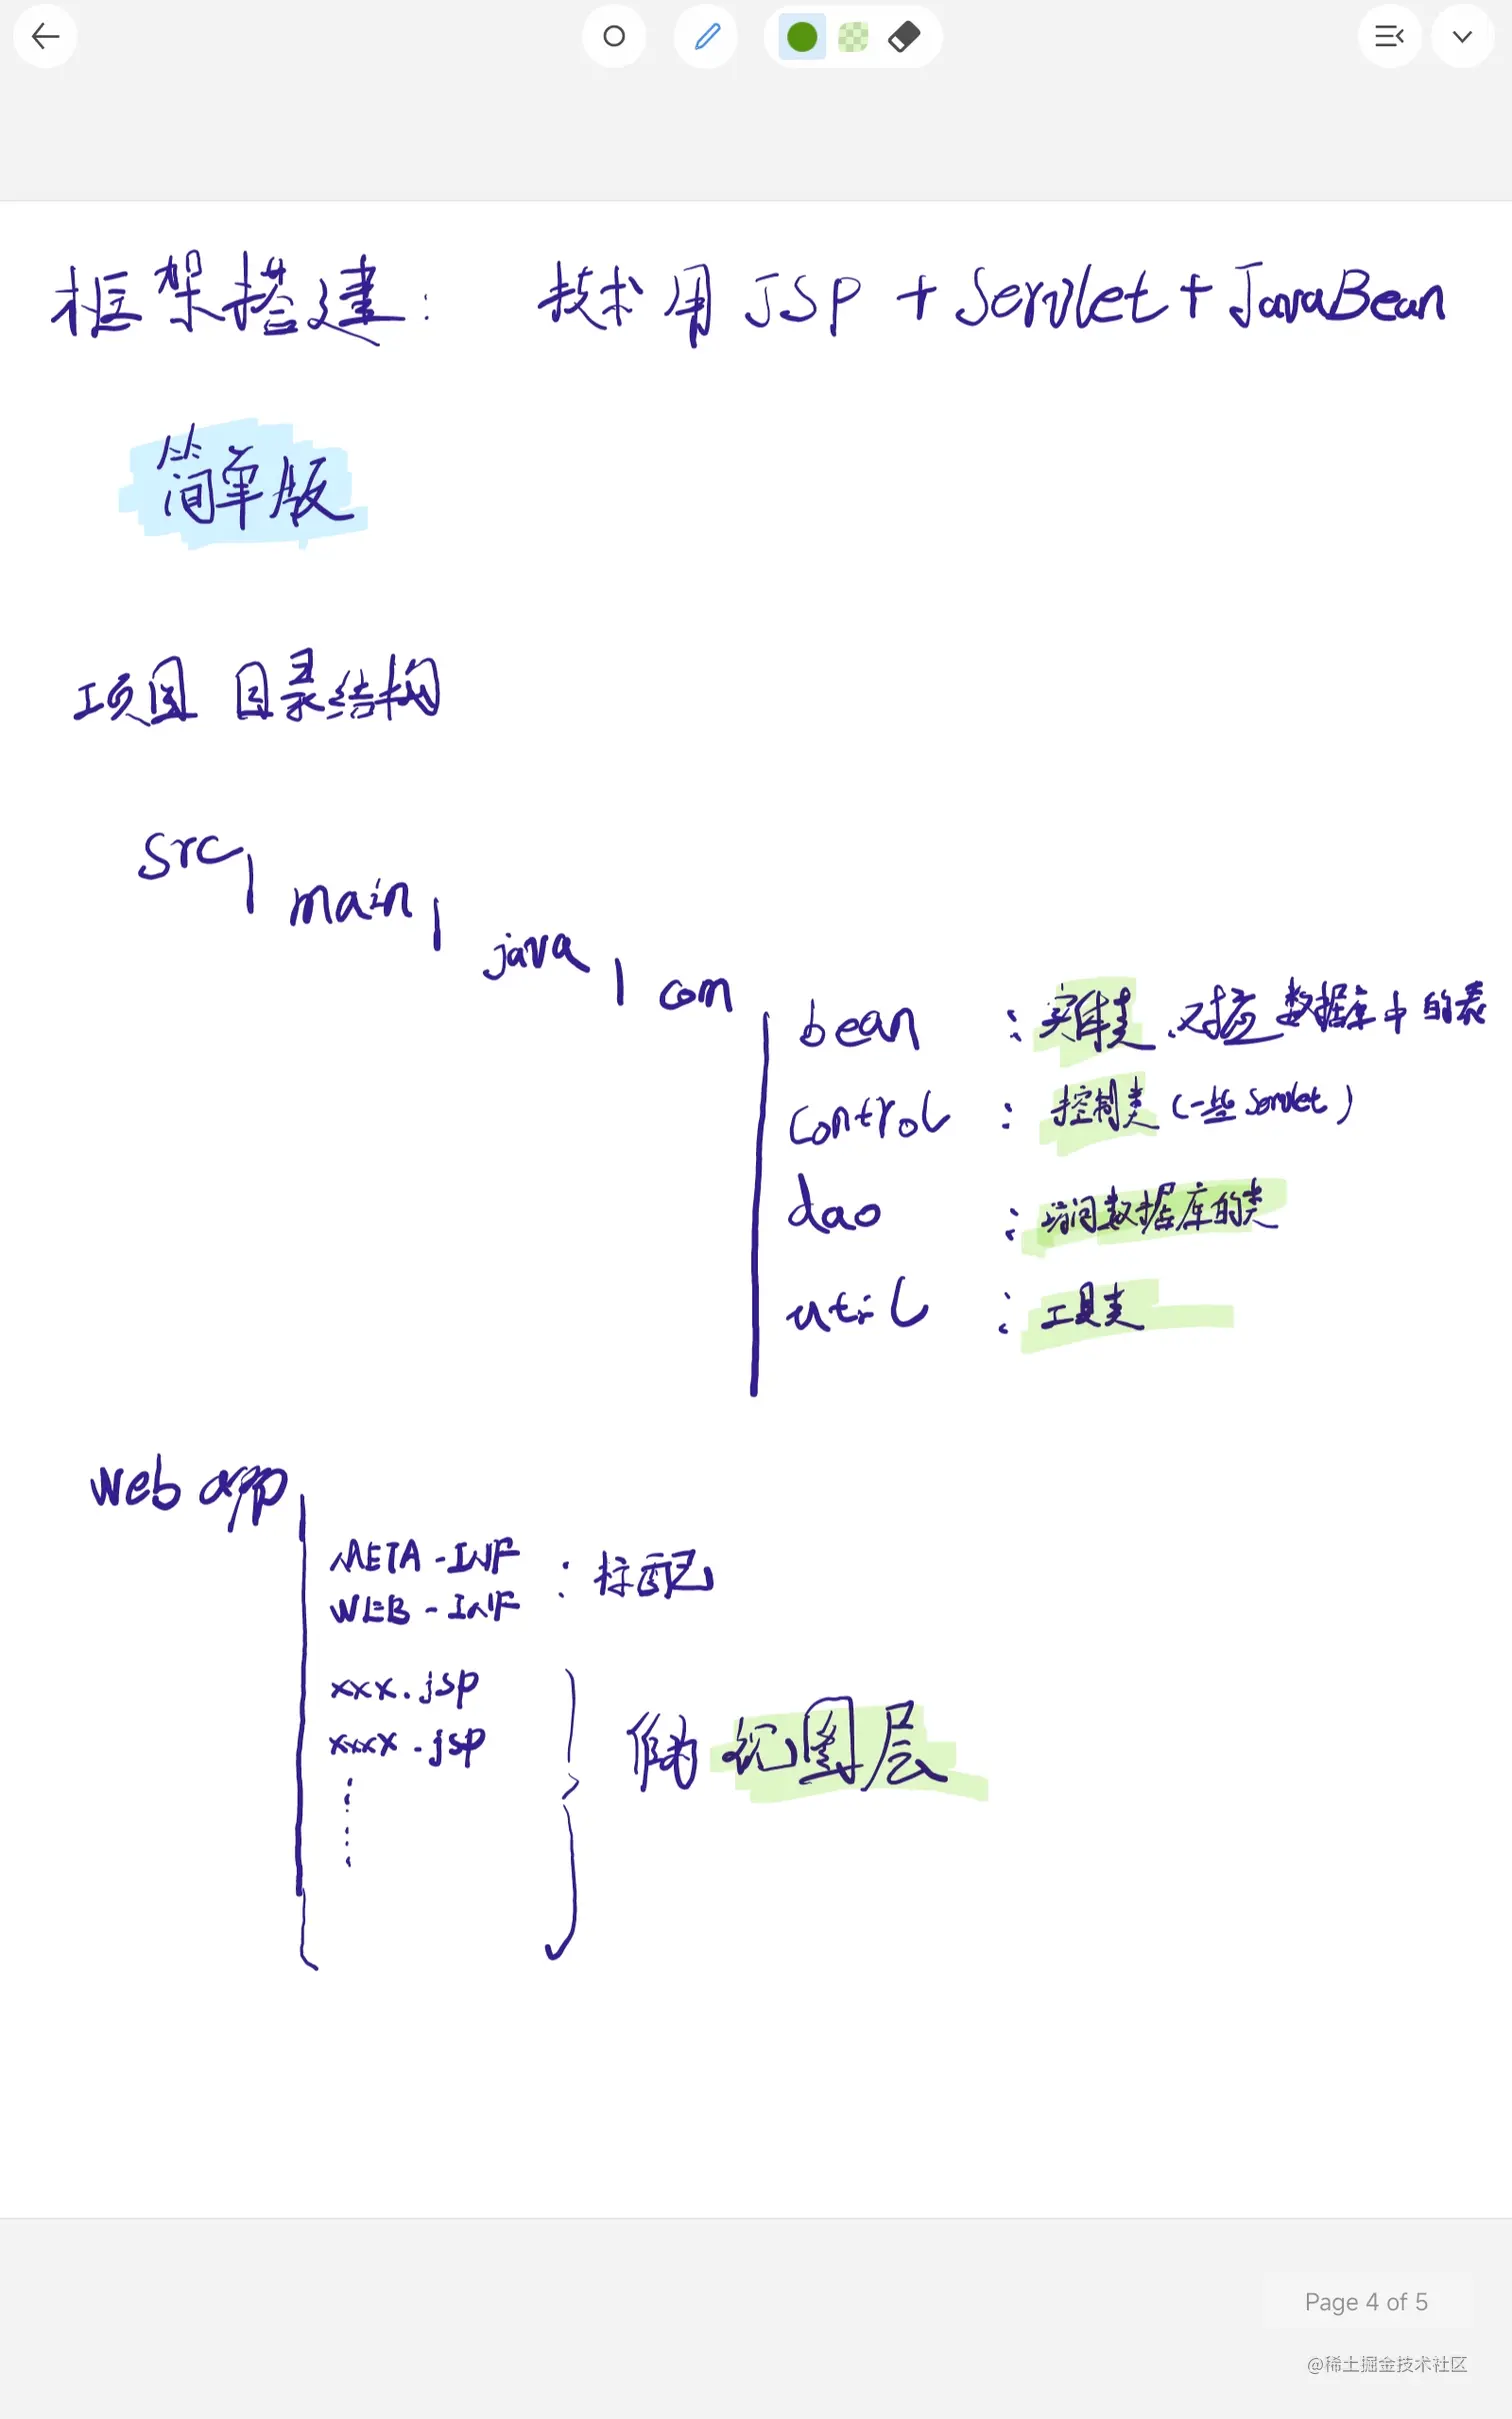 框架搭建： 技术用 JSP + Servlet + JavaBean
简单版
项目 目录结构
src
main
java
com
bean ：实体类，对应数据库中的表
control ：控制类（一些Servlet）
dao ：访问数据库的类
util ：工具类
web app
META-INF
WEB-INF ：标配
xxx.jsp
xxxx.jsp
作为 视图层
Page 4 of 5
@稀土掘金技术社区